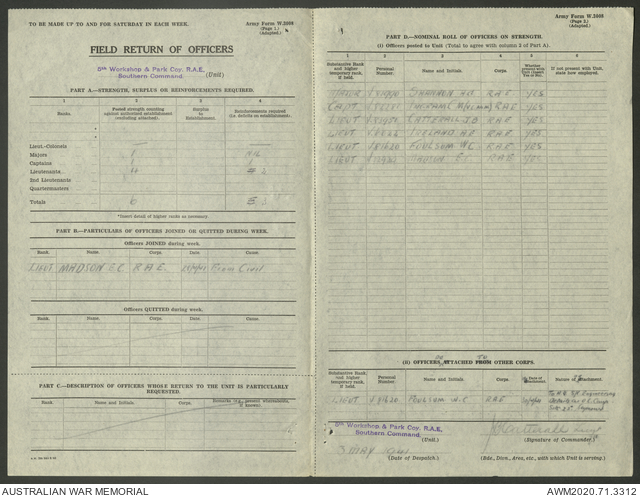 TO BE MADE UP TO AND FOR SATURDAY IN EACH WEEK.
Army Form W.3008
(Page 1.)
(Adapted.)
FIELD RETURN OF OFFICERS
5th Workshop & Park Coy. R.A.E.
Southern Command. (Unit)
PART A.—STRENGTH, SURPLUS OR REINFORCEMENTS REQUIRED.
1 2 3 4
Ranks. Posted strength counting against authorized establishment (excluding attached). Surplus to Establishment. Reinforcements required (i.e. deficits on establishment).
Lieut.-Colonels
Majors 1
Captains 1
Lieutenants 4 2
2nd Lieutenants
Quartermasters
Totals 6 3
*Insert detail of higher ranks as necessary.
PART B.—PARTICULARS OF OFFICERS JOINED OR QUITTED DURING WEEK.
Officers JOINED during week.
Rank. Name. Corps. Date. Cause.
LIEUT MADSON E.C R.A.E From Civil
Officers QUITTED during week.
Rank. Name. Corps. Date. Cause.
PART C.—DESCRIPTION OF OFFICERS WHOSE RETURN TO THE UNIT IS PARTICULARLY REQUESTED.
Rank. Name and Initials. Corps. Remarks (e.g., present whereabouts, if known).
Army Form W.3008
(Page 2.)
(Adapted.)
PART D.—NOMINAL ROLL OF OFFICERS ON STRENGTH.
(i) Officers posted to Unit (Total to agree with column 2 of Part A).
1 2 3 4 5 6
Substantive Rank and higher temporary rank, if held. Personal Number. Name and Initials. Corps. Whether present with Unit (insert Yes or No). If not present with Unit, state how employed.
MAJOR SHANNON H.O R.A.E YES
CAPT R.A.E YES
LIEUT CATTERALL J.B R.A.E YES
LIEUT IRELAND H R.A.E YES
LIEUT V81620 FOULSUM W.C R.A.E YES
LIEUT MADSON E.C R.A.E YES
(ii) OFFICERS ATTACHED TO FROM OTHER CORPS.
Substantive Rank and higher temporary rank, if held. Personal Number Name and Initials. Corps. Date of Attachment. Nature of Attachment
LIEUT V81620 FOULSUM W.C RAE
5th Workshop & Park Coy. R.A.E.
Southern Command.
(Unit.)
J B Catterall Lieut
(Signature of Commander.)
3 MAY 1941
(Date of Despatch.)
(Bde., Divn., Area, etc., with which Unit is serving.)
AUSTRALIAN WAR MEMORIAL
AWM2020.71.3312